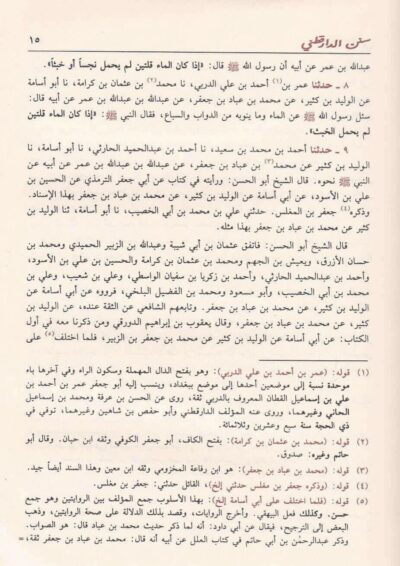 سنن الدارقطني ١٥
عبدالله بن عمر عن أبيه أن رسول الله ﷺ قال: «إذا كان الماء قلتين لم يحمل نجساً أو خبثاً».
٨ ـ حدثنا عمر بن(١) أحمد بن علي الدربي، نا محمد(٢) بن عثمان بن كرامة، نا أبو أسامة
عن الوليد بن كثير، عن محمد بن عباد بن جعفر، عن عبدالله بن عبدالله بن عمر عن أبيه قال:
سئل رسول الله ﷺ عن الماء وما ينوبه من الدواب والسباع، فقال النبي ﷺ: «إذا كان الماء قلتين
لم يحمل الخبث».
٩ ـ حدثنا أحمد بن محمد بن سعيد، نا أحمد بن عبدالحميد الحارثي، نا أبو أسامة، نا
الوليد بن كثير عن محمد(٣) بن عباد بن جعفر، عن عبدالله بن عبدالله بن عمر عن أبيه عن
النبي ﷺ نحوه. قال الشيخ أبو الحسن: ورأيته في كتاب عن أبي جعفر الترمذي عن الحسين بن
علي بن الأسود، عن أبي أسامة عن الوليد بن كثير، عن محمد بن عباد بن جعفر بهذا الإسناد.
وذكره(٤) جعفر بن المغلس. حدثني علي بن محمد بن أبي الخصيب، نا أبو أسامة، ثنا الوليد بن
كثير عن محمد بن عباد بن جعفر بهذا مثله.
قال الشيخ أبو الحسن: فاتفق عثمان بن أبي شيبة وعبدالله بن الزبير الحميدي ومحمد بن
حسان الأزرق، ويعيش بن الجهم ومحمد بن عثمان بن كرامة والحسين بن علي بن الأسود،
وأحمد بن عبدالحميد الحارثي، وأحمد بن زكريا بن سفيان الواسطي، وعلي بن شعيب، وعلي بن
محمد بن أبي الخصيب، وأبو مسعود ومحمد بن الفضيل البلخي، فرووه عن أبي أسامة عن
الوليد بن كثير، عن محمد بن عباد بن جعفر. وتابعهم الشافعي عن الثقة عنده، عن الوليد بن
كثير، عن محمد بن عباد بن جعفر، وقال يعقوب بن إبراهيم الدورقي ومن ذكرنا معه في أول
الكتاب: عن أبي أسامة عن الوليد بن كثير عن محمد بن جعفر بن الزبير، فلما اختلف(٥) على
(١) قوله: (عمر بن أحمد بن علي الدربي): وهو بفتح الدال المهملة وسكون الراء وفي آخرها باء
موحدة نسبة إلى موضعين أحدها إلى موضع ببغداد، وينسب إليه أبو جعفر عمر بن أحمد بن
علي بن إسماعيل القطان المعروف بالدربي ثقة، روى عن الحسن بن عرفة ومحمد بن إسماعيل
الحاني وغيرهما، وروى عنه المؤلف الدارقطني وأبو حفص بن شاهين وغيرهما، توفي في
ذي الحجة سنة سبع وعشرين وثلاثمائة.
(٢) قوله: (محمد بن عثمان بن كرامة): بفتح الكاف، أبو جعفر الكوفي وثقه ابن حبان. وقال أبو
حاتم وغيره: صدوق.
(٣) قوله: (محمد بن عباد بن جعفر): هو ابن رفاعة المخزومي وثقه ابن معين وهذا السند أيضاً جيد.
(٤) قوله: (وذكره جعفر بن مغلس حدثني إلخ)، القائل حدثني: جعفر بن مغلس.
(٥) قوله: (فلما اختلف على أبي أسامة إلخ): بهذا الأسلوب جمع المؤلف بين الروايتين وهو جمع
حسن. وكذلك فعل البيهقي. وأخرج الروايات، وقصد بذلك الدلالة على صحة الروايتين، وذهب
البعض إلى الترجيح، فيقال عن أبي داود: أنه لما ذكر حديث محمد بن عباد قال: هو الصواب.
وذكر عبدالرحمٰن بن أبي حاتم في كتاب العلل عن أبيه أنه قال: محمد بن عباد بن جعفر ثقة، =